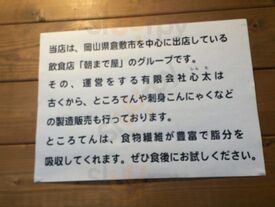 当店は、岡山県倉敷市を中心に出店している
飲食店「朝まで屋」のグループです。
その、運営をする有限会社心太は
しんた
古くから、ところてんや刺身こんにゃくなど
の製造販売も行っております。
ところてんは、食物繊維が豊富で脂分を
吸収してくれます。ぜひ食後にお試しください。